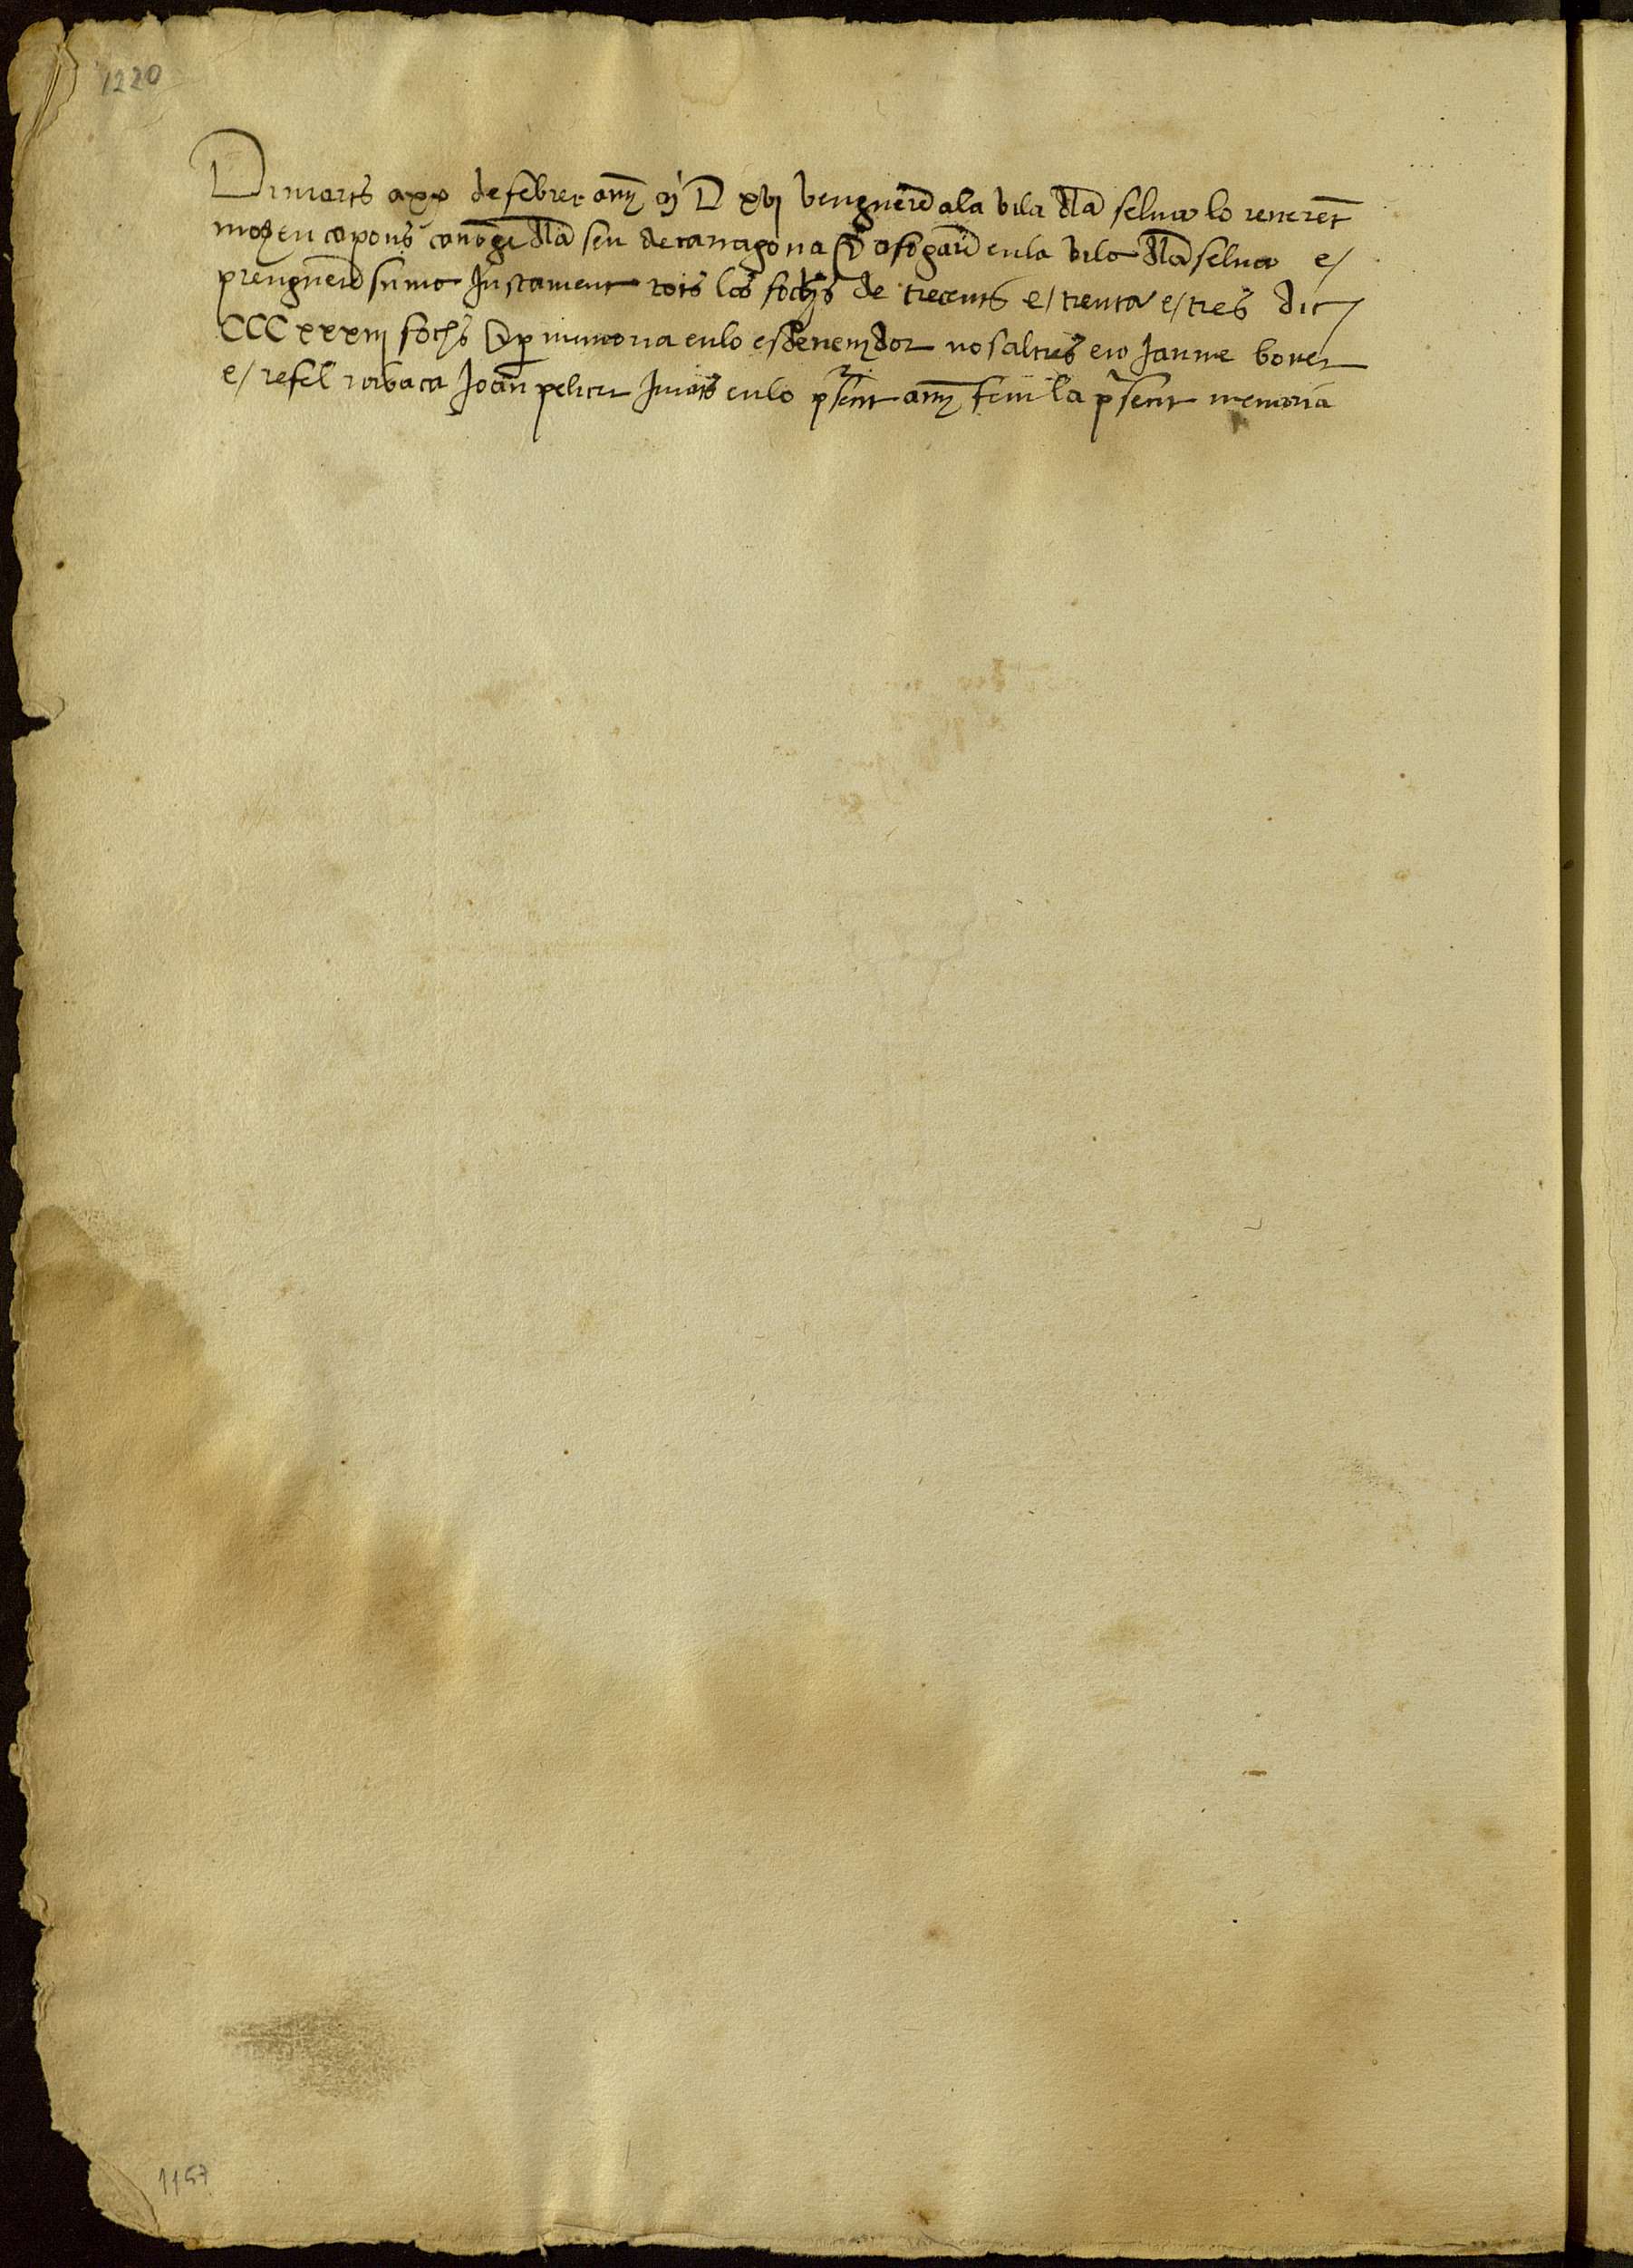 1220
Dimarts a xx de febrer any M D xvj vengueren a la vila dla selua lo reuerent
mosen capons canoge dla seu de tarragona afogaren en la vila dla selua e/
prengueren suma Justament tots los fochs de trecents e/ trenta e/ tres dic
CCC xxxiij fochs per memoria en lo esdeuenidor nosaltres en Jaume bouer
e/ refel Joan pelicer Jurats en lo present any fem la present memoria
1157